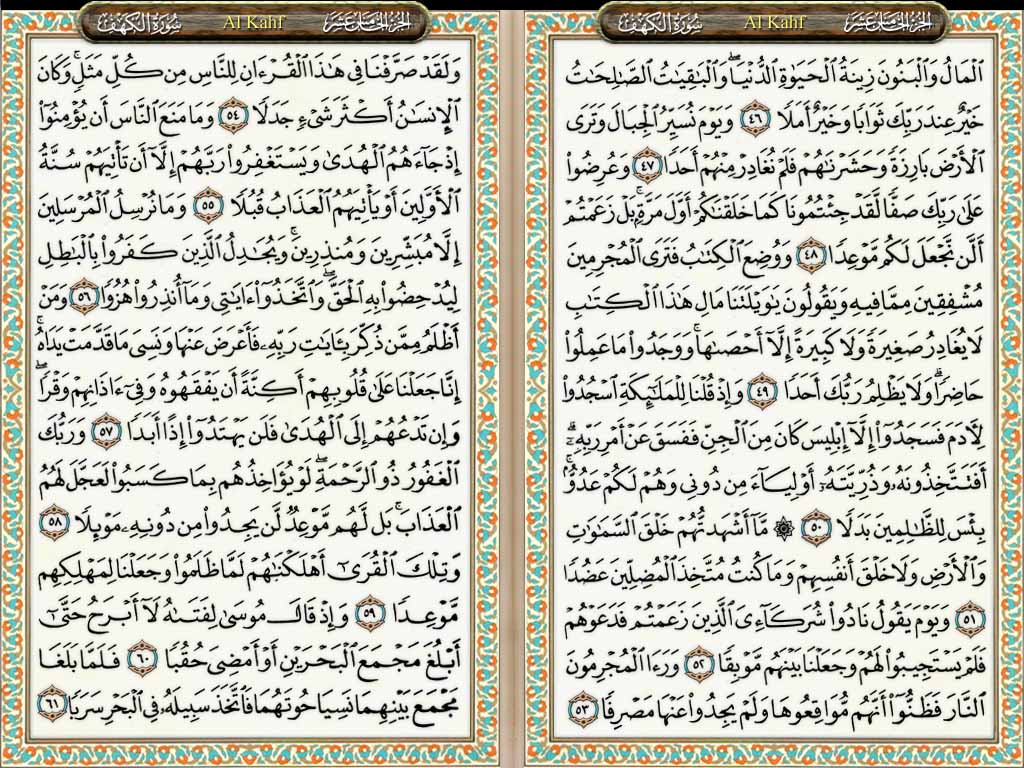 الجزء الخامس عشر Al Kahf سورة الكهف
ٱلْمَالُ وَٱلْبَنُونَ زِينَةُ ٱلْحَيَوٰةِ ٱلدُّنْيَا ۖ وَٱلْبَٰقِيَٰتُ ٱلصَّٰلِحَٰتُ
خَيْرٌ عِندَ رَبِّكَ ثَوَابًا وَخَيْرٌ أَمَلًا ٤٦ وَيَوْمَ نُسَيِّرُ ٱلْجِبَالَ وَتَرَى
ٱلْأَرْضَ بَارِزَةً وَحَشَرْنَٰهُمْ فَلَمْ نُغَادِرْ مِنْهُمْ أَحَدًا ٤٧ وَعُرِضُوا۟
عَلَىٰ رَبِّكَ صَفًّا لَّقَدْ جِئْتُمُونَا كَمَا خَلَقْنَٰكُمْ أَوَّلَ مَرَّةٍۭ ۚ بَلْ زَعَمْتُمْ
أَلَّن نَّجْعَلَ لَكُم مَّوْعِدًا ٤٨ وَوُضِعَ ٱلْكِتَٰبُ فَتَرَى ٱلْمُجْرِمِينَ
مُشْفِقِينَ مِمَّا فِيهِ وَيَقُولُونَ يَٰوَيْلَتَنَا مَالِ هَٰذَا ٱلْكِتَٰبِ
لَا يُغَادِرُ صَغِيرَةً وَلَا كَبِيرَةً إِلَّآ أَحْصَىٰهَا ۚ وَوَجَدُوا۟ مَا عَمِلُوا۟
حَاضِرًا ۗ وَلَا يَظْلِمُ رَبُّكَ أَحَدًا ٤٩ وَإِذْ قُلْنَا لِلْمَلَٰٓئِكَةِ ٱسْجُدُوا۟
لِءَادَمَ فَسَجَدُوٓا۟ إِلَّآ إِبْلِيسَ كَانَ مِنَ ٱلْجِنِّ فَفَسَقَ عَنْ أَمْرِ رَبِّهِۦٓ ۗ
أَفَتَتَّخِذُونَهُۥ وَذُرِّيَّتَهُۥٓ أَوْلِيَآءَ مِن دُونِى وَهُمْ لَكُمْ عَدُوٌّۢ ۚ
بِئْسَ لِلظَّٰلِمِينَ بَدَلًا ٥٠ ۞ مَّآ أَشْهَدتُّهُمْ خَلْقَ ٱلسَّمَٰوَٰتِ
وَٱلْأَرْضِ وَلَا خَلْقَ أَنفُسِهِمْ وَمَا كُنتُ مُتَّخِذَ ٱلْمُضِلِّينَ عَضُدًا
٥١ وَيَوْمَ يَقُولُ نَادُوا۟ شُرَكَآءِىَ ٱلَّذِينَ زَعَمْتُمْ فَدَعَوْهُمْ
فَلَمْ يَسْتَجِيبُوا۟ لَهُمْ وَجَعَلْنَا بَيْنَهُم مَّوْبِقًا ٥٢ وَرَءَا ٱلْمُجْرِمُونَ
ٱلنَّارَ فَظَنُّوٓا۟ أَنَّهُم مُّوَاقِعُوهَا وَلَمْ يَجِدُوا۟ عَنْهَا مَصْرِفًا ٥٣
الجزء الخامس عشر Al Kahf سورة الكهف
وَلَقَدْ صَرَّفْنَا فِى هَٰذَا ٱلْقُرْءَانِ لِلنَّاسِ مِن كُلِّ مَثَلٍ ۚ وَكَانَ
ٱلْإِنسَٰنُ أَكْثَرَ شَىْءٍ جَدَلًا ٥٤ وَمَا مَنَعَ ٱلنَّاسَ أَن يُؤْمِنُوٓا۟
إِذْ جَآءَهُمُ ٱلْهُدَىٰ وَيَسْتَغْفِرُوا۟ رَبَّهُمْ إِلَّآ أَن تَأْتِيَهُمْ سُنَّةُ
ٱلْأَوَّلِينَ أَوْ يَأْتِيَهُمُ ٱلْعَذَابُ قُبُلًا ٥٥ وَمَا نُرْسِلُ ٱلْمُرْسَلِينَ
إِلَّا مُبَشِّرِينَ وَمُنذِرِينَ ۚ وَيُجَٰدِلُ ٱلَّذِينَ كَفَرُوا۟ بِٱلْبَٰطِلِ
لِيُدْحِضُوا۟ بِهِ ٱلْحَقَّ ۖ وَٱتَّخَذُوٓا۟ ءَايَٰتِى وَمَآ أُنذِرُوا۟ هُزُوًا ٥٦ وَمَنْ
أَظْلَمُ مِمَّن ذُكِّرَ بِـَٔايَٰتِ رَبِّهِۦ فَأَعْرَضَ عَنْهَا وَنَسِىَ مَا قَدَّمَتْ يَدَاهُ ۚ
إِنَّا جَعَلْنَا عَلَىٰ قُلُوبِهِمْ أَكِنَّةً أَن يَفْقَهُوهُ وَفِىٓ ءَاذَانِهِمْ وَقْرًا ۖ
وَإِن تَدْعُهُمْ إِلَى ٱلْهُدَىٰ فَلَن يَهْتَدُوٓا۟ إِذًا أَبَدًا ٥٧ وَرَبُّكَ
ٱلْغَفُورُ ذُو ٱلرَّحْمَةِ ۖ لَوْ يُؤَاخِذُهُم بِمَا كَسَبُوا۟ لَعَجَّلَ لَهُمُ
ٱلْعَذَابَ ۚ بَل لَّهُم مَّوْعِدٌ لَّن يَجِدُوا۟ مِن دُونِهِۦ مَوْئِلًا ٥٨
وَتِلْكَ ٱلْقُرَىٰٓ أَهْلَكْنَٰهُمْ لَمَّا ظَلَمُوا۟ وَجَعَلْنَا لِمَهْلِكِهِم
مَّوْعِدًا ٥٩ وَإِذْ قَالَ مُوسَىٰ لِفَتَىٰهُ لَآ أَبْرَحُ حَتَّىٰٓ
أَبْلُغَ مَجْمَعَ ٱلْبَحْرَيْنِ أَوْ أَمْضِىَ حُقُبًا ٦٠ فَلَمَّا بَلَغَا
مَجْمَعَ بَيْنِهِمَا نَسِيَا حُوتَهُمَا فَٱتَّخَذَ سَبِيلَهُۥ فِى ٱلْبَحْرِ سَرَبًا ٦١